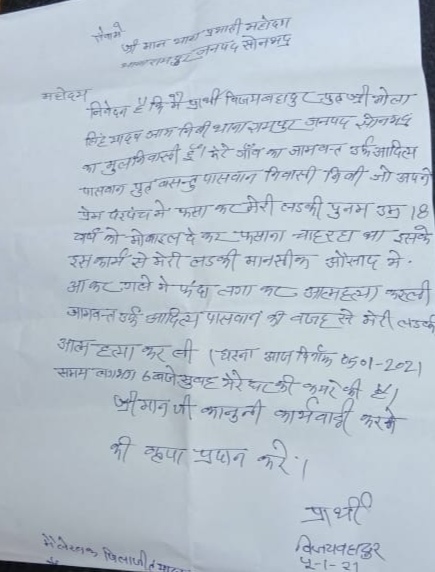 सेवामे
श्री मान थाना प्रभारी महोदय
थाना रामपुर जनपद सोनभद्र
महोदय
निवेदन है कि मै प्रार्थी विजयबहादुर पुत्र श्री भोला
सिंह यादव ग्राम थाना रामपुर जनपद सोनभद्र
का मुलनिवासी हुँ। मेरे गाँव का जामवन्त उर्फ आदित्य
पासवान पुत्र बसन्तु पासवान निवासी जो अपने
प्रेम परपंच मे फसा कर मेरी लडकी पुनम उम्र 18
वर्ष को मोबाइल दे कर फसाना चाह रहा था इसके
इस कार्य से मेरी लडकी मानसीक औसाद मे
आकर गले मे फंदा लगा कर आत्महत्या करली
जामवन्त उर्फ आदित्य पासवान की वजह से मेरी लडकी
आत्महत्या कर ली (घटना आज दिनाँक 01-2021
समय लगभग 6 बजे सुबह मेरे घर की कमरे की है)
श्रीमान जी कानुनी कार्यवाही करने
की कृपा प्रदान करे।
प्रार्थी
विजयबहादुर
5-1-21